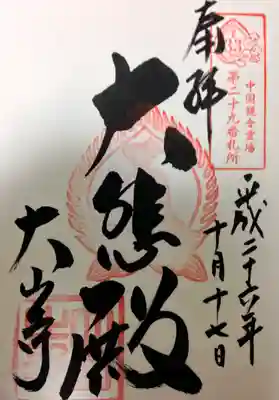 奉拝
中国観音霊場
第二十九番札所
平成二十六年
十月十七日
大悲殿
大山寺